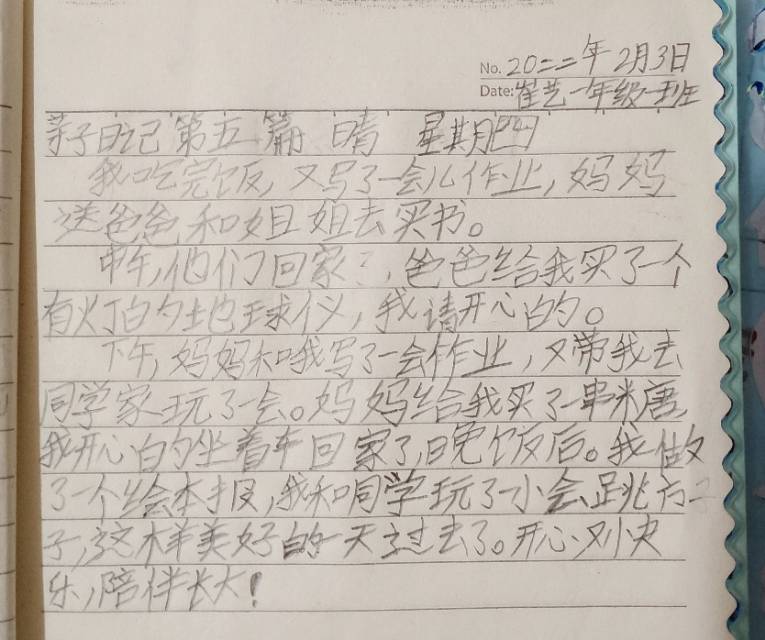 No. 20二二年2月3日
Date: 崔艺一年级一班
芋子日记第五篇 晴 星期四
我吃完饭,又写了一会儿作业,妈妈
送爸爸和姐姐去买书。
中午,他们回家,爸爸给我买了一个
有灯的地球仪,我请开心的。
下午,妈妈和我写了一会作业,又带我去
同学家玩了一会。妈妈给我买了一串米唐,
我开心的坐着车回家了,晚饭后。我做
了一个绘本报,我和同学玩了一小会跳方
子,这样美好的一天过去了。开心又小夬
乐,陪伴长大!